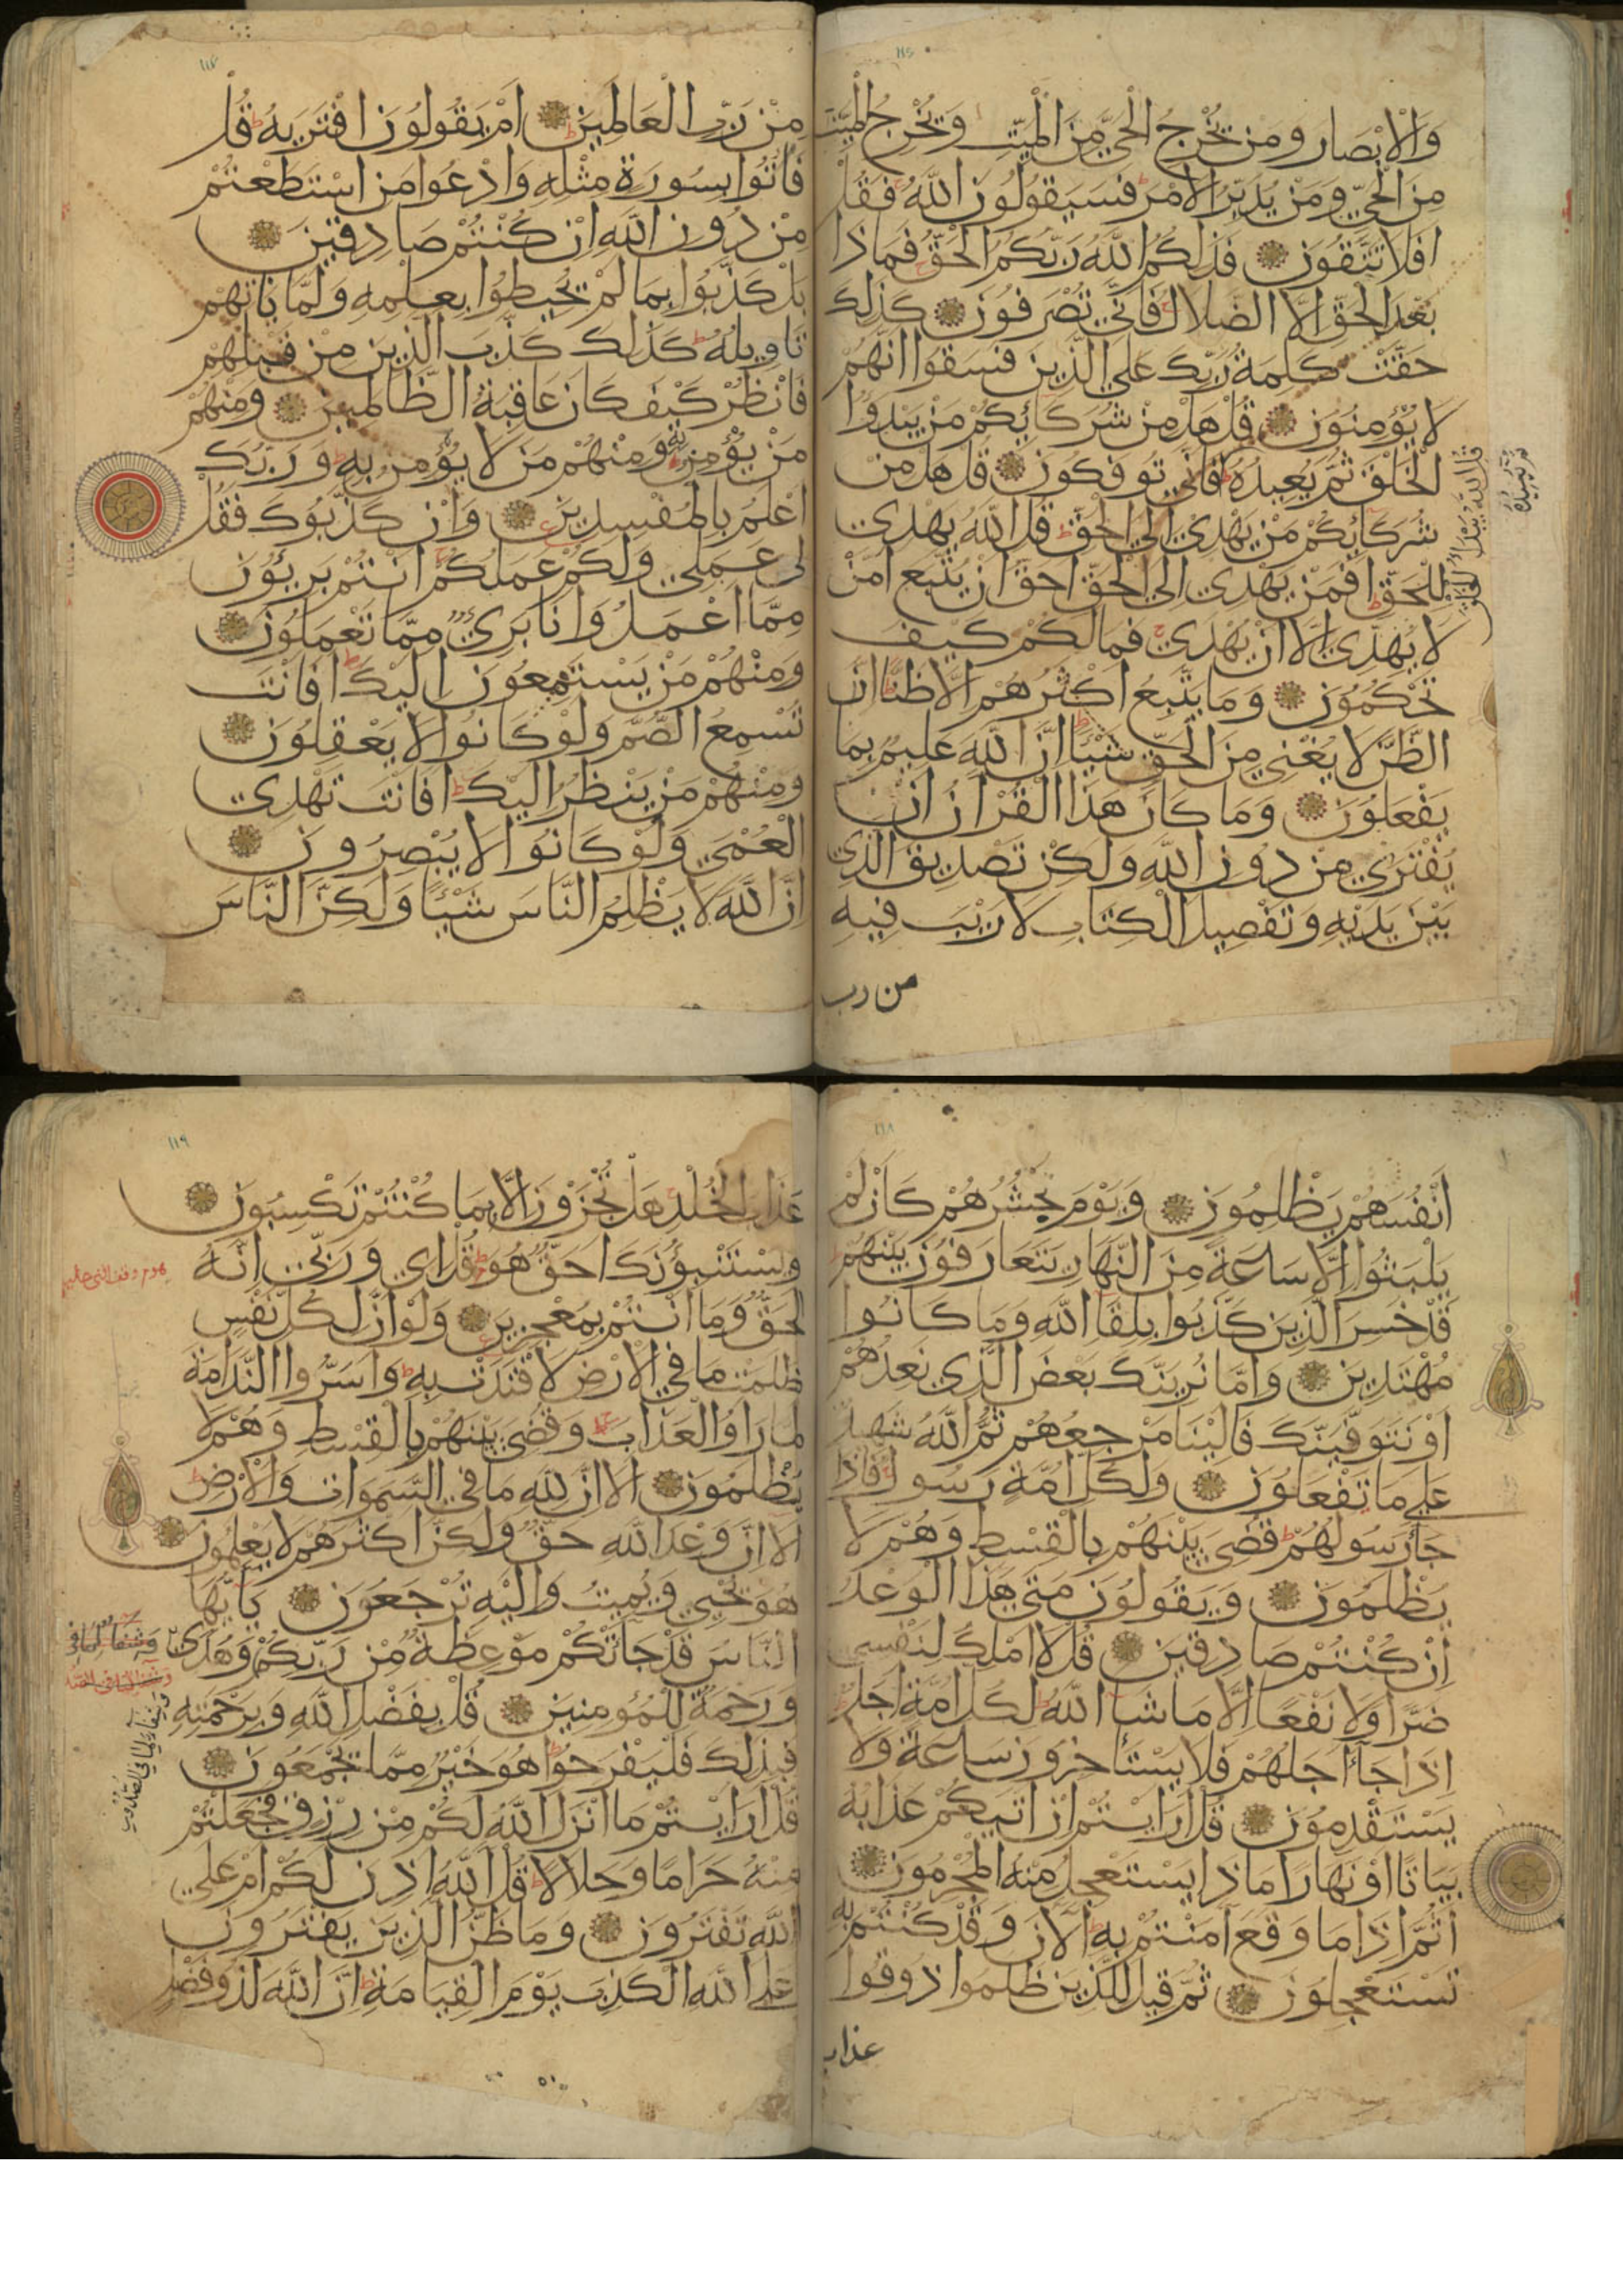 ١١٦
وَالْاَبْصَار وَمَنْ يُخْرِجُ الْحَيَّ مِنَ الْمَيِّتِ وَيُخْرِجُ الْمَيِّتَ
مِنَ الْحَيِّ وَمَنْ يُدَبِّرُ الْاَمْرَ فَسَيَقُولُونَ اللّٰهُ فَقُلْ
اَفَلَا تَتَّقُونَ فَذٰلِكُمُ اللّٰهُ رَبُّكُمُ الْحَقُّ فَمَاذَا
بَعْدَ الْحَقِّ اِلَّا الضَّلَالُ فَاَنّٰي تُصْرَفُونَ كَذٰلِكَ
حَقَّتْ كَلِمَةُ رَبِّكَ عَلَي الَّذِينَ فَسَقُوا اَنَّهُمْ
لَا يُؤْمِنُونَ قُلْ هَلْ مِنْ شُرَكَائِكُمْ مَنْ يَبْدَؤُا
الْخَلْقَ ثُمَّ يُعِيدُهُ فَاَنّٰي تُوفَكُونَ قُلْ هَلْ مِنْ
شُرَكَائِكُمْ مَنْ يَهْدِي اِلَي الْحَقِّ قُلِ اللّٰهُ يَهْدِي
لِلْحَقِّ اَفَمَنْ يَهْدِي اِلَي الْحَقِّ اَحَقُّ اَنْ يُتَّبَعَ اَمَّنْ
لَا يَهِدِّي اِلَّا اَنْ يُهْدٰي فَمَا لَكُمْ كَيْفَ
تَحْكُمُونَ وَمَا يَتَّبِعُ اَكْثَرُهُمْ اِلَّا ظَنًّا اِنَّ
الظَّنَّ لَا يُغْنِي مِنَ الْحَقِّ شَيْئًا اِنَّ اللّٰهَ عَلِيمٌ بِمَا
يَفْعَلُونَ وَمَا كَانَ هٰذَا الْقُرْاٰنُ اَنْ
يُفْتَرٰي مِنْ دُونِ اللّٰهِ وَلٰكِنْ تَصْدِيقَ الَّذِي
بَيْنَ يَدَيْهِ وَتَفْصِيلَ الْكِتَابِ لَا رَيْبَ فِيهِ
من رب
قل الله يبدؤا الخلق
١١٧
مِنْ رَبِّ الْعَالَمِينَ اَمْ يَقُولُونَ افْتَرٰيهُ قُلْ
فَاْتُوا بِسُورَةٍ مِثْلِهِ وَادْعُوا مَنِ اسْتَطَعْتُمْ
مِنْ دُونِ اللّٰهِ اِنْ كُنْتُمْ صَادِقِينَ
بَلْ كَذَّبُوا بِمَا لَمْ يُحِيطُوا بِعِلْمِهِ وَلَمَّا يَاْتِهِمْ
تَاْوِيلُهُ كَذٰلِكَ كَذَّبَ الَّذِينَ مِنْ قَبْلِهِمْ
فَانْظُرْ كَيْفَ كَانَ عَاقِبَةُ الظَّالِمِينَ وَمِنْهُمْ
مَنْ يُؤْمِنُ بِهِ وَمِنْهُمْ مَنْ لَا يُؤْمِنُ بِهِ وَرَبُّكَ
اَعْلَمُ بِالْمُفْسِدِينَ وَاِنْ كَذَّبُوكَ فَقُلْ
لِي عَمَلِي وَلَكُمْ عَمَلُكُمْ اَنْتُمْ بَرِيئُونَ
مِمَّا اَعْمَلُ وَاَنَا بَرِيءٌ مِمَّا تَعْمَلُونَ
وَمِنْهُمْ مَنْ يَسْتَمِعُونَ اِلَيْكَ اَفَاَنْتَ
تُسْمِعُ الصُّمَّ وَلَوْ كَانُوا لَا يَعْقِلُونَ
وَمِنْهُمْ مَنْ يَنْظُرُ اِلَيْكَ اَفَاَنْتَ تَهْدِي
الْعُمْيَ وَلَوْ كَانُوا لَا يُبْصِرُونَ
اِنَّ اللّٰهَ لَا يَظْلِمُ النَّاسَ شَيْئًا وَلٰكِنَّ النَّاسَ
١١٨
اَنْفُسَهُمْ يَظْلِمُونَ وَيَوْمَ يَحْشُرُهُمْ كَاَنْ لَمْ
يَلْبَثُوا اِلَّا سَاعَةً مِنَ النَّهَارِ يَتَعَارَفُونَ بَيْنَهُمْ
قَدْ خَسِرَ الَّذِينَ كَذَّبُوا بِلِقَا اللّٰهِ وَمَا كَانُوا
مُهْتَدِينَ وَاِمَّا نُرِيَنَّكَ بَعْضَ الَّذِي نَعِدُهُمْ
اَوْ نَتَوَفَّيَنَّكَ فَاِلَيْنَا مَرْجِعُهُمْ ثُمَّ اللّٰهُ شَهِيدٌ
عَلٰي مَا يَفْعَلُونَ وَلِكُلِّ اُمَّةٍ رَسُولٌ فَاِذَا
جَاَ رَسُولُهُمْ قُضِيَ بَيْنَهُمْ بِالْقِسْطِ وَهُمْ لَا
يُظْلَمُونَ وَيَقُولُونَ مَتٰي هٰذَا الْوَعْدُ
اِنْ كُنْتُمْ صَادِقِينَ قُلْ لَا اَمْلِكُ لِنَفْسِي
ضَرًّا وَلَا نَفْعًا اِلَّا مَا شَاَ اللّٰهُ لِكُلِّ اُمَّةٍ اَجَلٌ
اِذَا جَاَ اَجَلُهُمْ فَلَا يَسْتَاْخِرُونَ سَاعَةً وَلَا
يَسْتَقْدِمُونَ قُلْ اَرَاَيْتُمْ اِنْ اَتٰيكُمْ عَذَابُهُ
بَيَاتًا اَوْ نَهَارًا مَاذَا يَسْتَعْجِلُ مِنْهُ الْمُجْرِمُونَ
اَثُمَّ اِذَا مَا وَقَعَ اٰمَنْتُمْ بِهِ اٰلْاٰنَ وَقَدْ كُنْتُمْ بِهِ
تَسْتَعْجِلُونَ ثُمَّ قِيلَ لِلَّذِينَ ظَلَمُوا ذُوقُوا
عذاب
١١٩
عَذَابَ الْخُلْدِ هَلْ تُجْزَوْنَ اِلَّا بِمَا كُنْتُمْ تَكْسِبُونَ
وَيَسْتَنْبِؤُنَكَ اَحَقٌّ هُوَ قُلْ اِي وَرَبِّي اِنَّهُ
لَحَقٌّ وَمَا اَنْتُمْ بِمُعْجِزِينَ وَلَوْ اَنَّ لِكُلِّ نَفْسٍ
ظَلَمَتْ مَا فِي الْاَرْضِ لَافْتَدَتْ بِهِ وَاَسَرُّوا النَّدَامَةَ
لَمَّا رَاَوُا الْعَذَابَ وَقُضِيَ بَيْنَهُمْ بِالْقِسْطِ وَهُمْ لَا
يُظْلَمُونَ اَلَا اِنَّ لِلّٰهِ مَا فِي السَّمٰوَاتِ وَالْاَرْضِ
اَلَا اِنَّ وَعْدَ اللّٰهِ حَقٌّ وَلٰكِنَّ اَكْثَرَهُمْ لَا يَعْلَمُونَ
هُوَ يُحْيِي وَيُمِيتُ وَاِلَيْهِ تُرْجَعُونَ يَا اَيُّهَا
النَّاسُ قَدْ جَاَتْكُمْ مَوْعِظَةٌ مِنْ رَبِّكُمْ وَهُدًي
وَرَحْمَةٌ لِلْمُؤْمِنِينَ قُلْ بِفَضْلِ اللّٰهِ وَبِرَحْمَتِهِ
فَبِذٰلِكَ فَلْيَفْرَحُوا هُوَ خَيْرٌ مِمَّا يَجْمَعُونَ
قُلْ اَرَاَيْتُمْ مَا اَنْزَلَ اللّٰهُ لَكُمْ مِنْ رِزْقٍ فَجَعَلْتُمْ
مِنْهُ حَرَامًا وَحَلَالًا قُلْ اٰللّٰهُ اَذِنَ لَكُمْ اَمْ عَلَي
اللّٰهِ تَفْتَرُونَ وَمَا ظَنُّ الَّذِينَ يَفْتَرُونَ
عَلَي اللّٰهِ الْكَذِبَ يَوْمَ الْقِيَامَةِ اِنَّ اللّٰهَ لَذُو فَضْلٍ
وشفاء لما في
وشفاء لما في الصدور